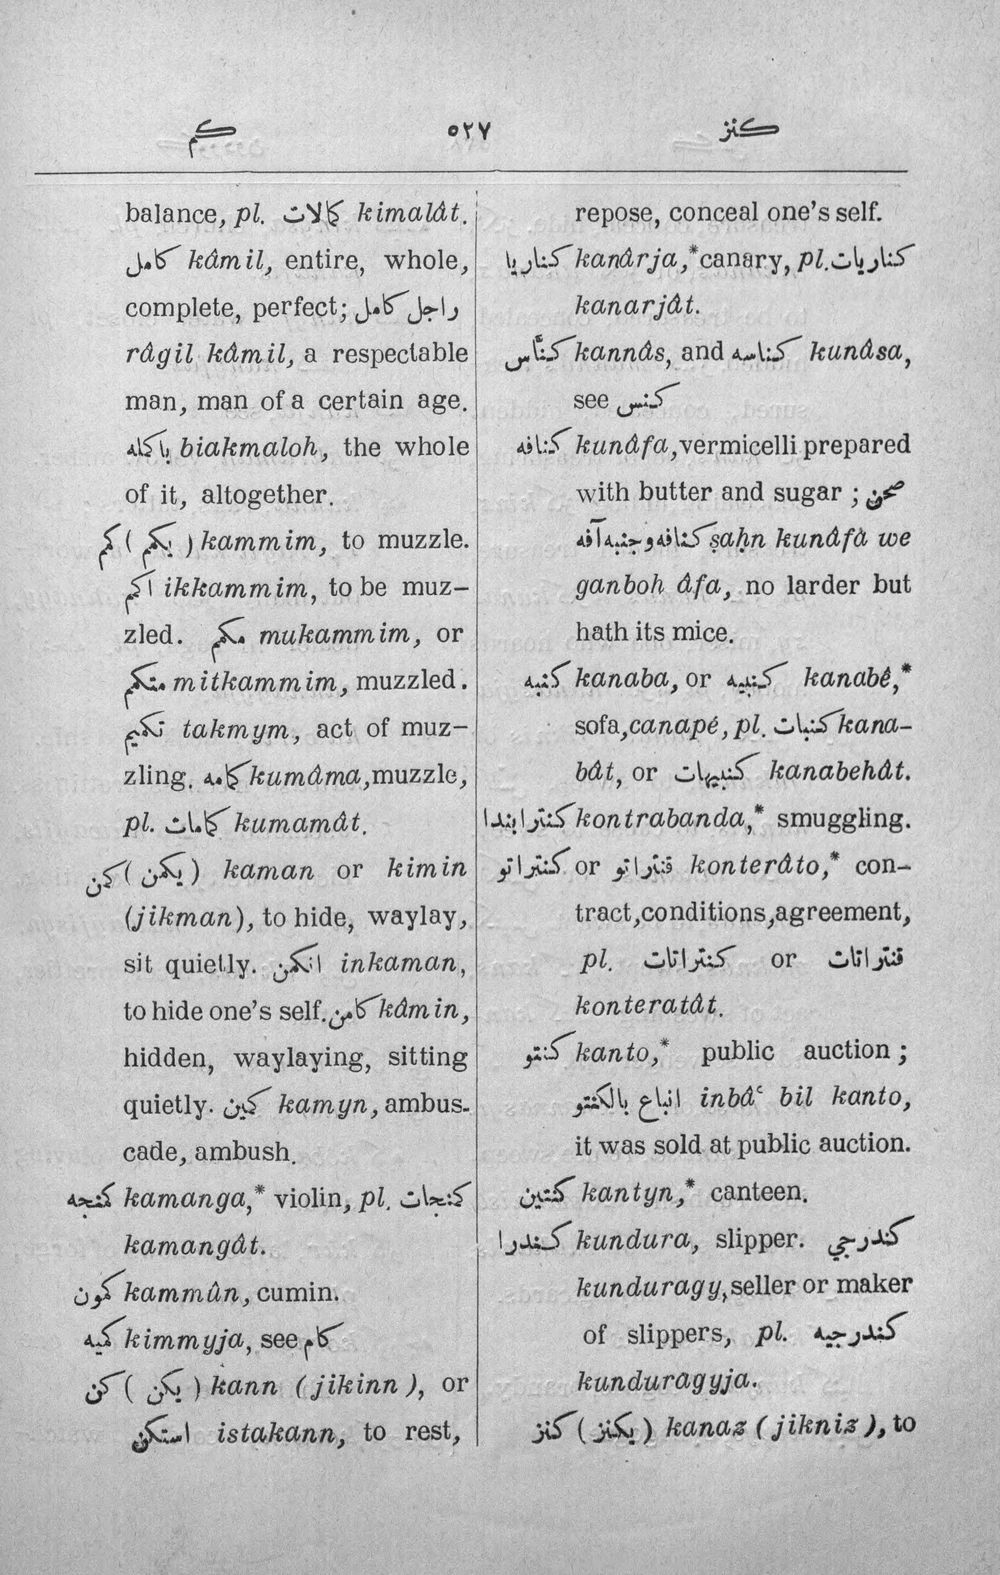 كم ٥٢٧ كنز
balance, pl. كمالات kimalât.
كامل kâmil, entire, whole,
complete, perfect; راجل كامل
râgil kâmil, a respectable
man, man of a certain age.
باكمله biakmaloh, the whole
of it, altogether.
كمم ( يكمم ) kammim, to muzzle.
اكمم ikkammim, to be muz-
zled. مكمم mukammim, or
متكمم mitkammim, muzzled.
تكميم takmym, act of muz-
zling. كمامه kumâma, muzzle,
pl. كمامات kumamât.
كمن ( يكمن ) kaman or kimin
(jikman), to hide, waylay,
sit quietly. انكمن inkaman,
to hide one's self. كامن kâmin,
hidden, waylaying, sitting
quietly. كمين kamyn, ambus-
cade, ambush.
كمنجه kamanga,* violin, pl. كمنجات
kamangât.
كمون kammûn, cumin.
كميه kimmyja, see كام
كن ( يكن ) kann (jikinn), or
استكن istakann, to rest,
repose, conceal one's self.
كناريا kanârja,* canary, pl. كناريات
kanarjât.
كنّاس kannâs, and كناسه kunâsa,
see كنس
كنافه kunâfa, vermicelli prepared
with butter and sugar ; صحن
كنافه وجنبه آفه ṣaḥn kunâfà we
ganboh âfa, no larder but
hath its mice.
كنبه kanaba, or كنبيه kanabê,*
sofa, canapé, pl. كنبات kana-
bât, or كنبيهات kanabehât.
كنترابندا kontrabanda,* smuggling.
كنتراتو or قنتراتو konterâto,* con-
tract, conditions, agreement,
pl. كنتراتات or قنتراتات
konteratât.
كنتو kanto,* public auction ;
انباع بالكنتو inbâʿ bil kanto,
it was sold at public auction.
كنتين kantyn,* canteen.
كندرا kundura, slipper. كندرجي
kunduragy, seller or maker
of slippers, pl. كندرجيه
kunduragyja.
كنز ( يكنز ) kanaz (jikniz), to